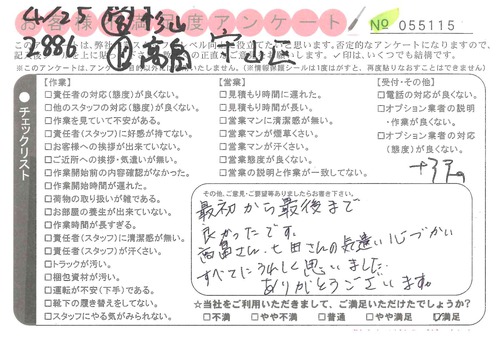 4/25 営杉山
お客様満足度アンケート
№ 055115
2886 高畠 守山区
※このアンケートは、
【作業】
□責任者の対応(態度)が良くない。
□他のスタッフの対応(態度)が良くない。
□作業を見ていて不安がある。
□責任者(スタッフ)に好感が持てない。
□お客様への挨拶が出来ていない。
□ご近所への挨拶・気遣いが無い。
□作業開始前の内容確認がなかった。
□作業開始時間が遅れた。
□荷物の取り扱いが雑である。
□お部屋の養生が出来ていない。
□作業時間が長すぎる。
□責任者(スタッフ)に清潔感が無い。
□責任者(スタッフ)が汗くさい。
□トラックが汚い。
□梱包資材が汚い。
□運転が不安(下手)である。
□靴下の履き替えをしてない。
□スタッフにやる気がみられない。
【営業】
□見積もり時間に遅れた。
□見積もり時間が長い。
□営業マンに清潔感が無い。
□営業マンが煙草くさい。
□営業マンが汗くさい。
□営業態度が良くない。
□営業の説明と作業が一致してない。
【受付・その他】
□電話の対応が良くない。
□オプション業者の説明
・作業が良くない。
□オプション業者の対応
(態度)が良くない。
●チェックリスト
その他、ご意見・ご要望等ありましたらお書き下さい。
最初から最後まで
良かったです。
高畠さん、七田さんの気遣い心づかい
すべてにうれしく思いました。
ありがとうございます。
☆当社をご利用いただきまして、ご満足いただけたでしょうか?
□不満 □やや不満 □普通 □やや満足 ☑満足